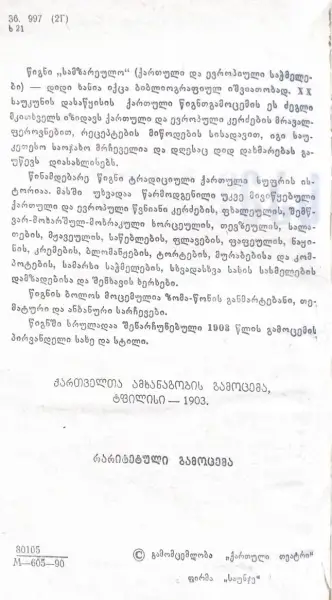 36. 997 (2Г)
ს 21
წიგნი „სამზარეულო“ (ქართული და ევროპიული საჭმელე-
ბი) — დიდი ხანია იქცა ბიბლიოგრაფიულ იშვიათობად. XX
საუკუნის დასაწყისის ქართული წიგნთგამოცემის ეს ძეგლი
მკითხველს იზიდავს ქართული და ევროპული კერძების მრავალ-
ფეროვნებით, რეცეპტების მიწოდების სისადავით, იგი საუ-
კეთესო საოჯახო მრჩეველია და დღესაც დიდ დახმარებას გა-
უწევს დიასახლისებს.
წინამდებარე წიგნი ტრადიციული ქართული სუფრის ის-
ტორიაა. მასში უხვადაა წარმოდგენილი უკვე მივიწყებული
ქართული და ევროპული წვნიანი კერძების, ფხალეულის, შემწ-
ვარ-მოხარშულ-მოხრაკული ხორცეულის, თევზეულის, სალა-
თების, მჟავეულის, საწებლების, ფლავების, ფაფეულის, ნაყი-
ნის, კრემების, ბლომანჟების, ტორტების, მურაბებისა და კომ-
პოტების, სამარხო საჭმელების, სხვადასხვა სახის სასმელების
დამზადებისა და შენახვის ხერხები.
წიგნის ბოლოს მოცემულია ზომა-წონის განმარტებანი, თე-
მატური და ანბანური სარჩევები.
წიგნში სრულადაა შენარჩუნებული 1903 წლის გამოცემის
პირვანდელი სახე და სტილი.
ქართველთა ამხანაგობის გამოცემა,
ტფილისი — 1903.
რარიტეტული გამოცემა
80105
M—605—90
© გამომცემლობა „ქართული თეატრი“
ფირმა „საუნჯე“